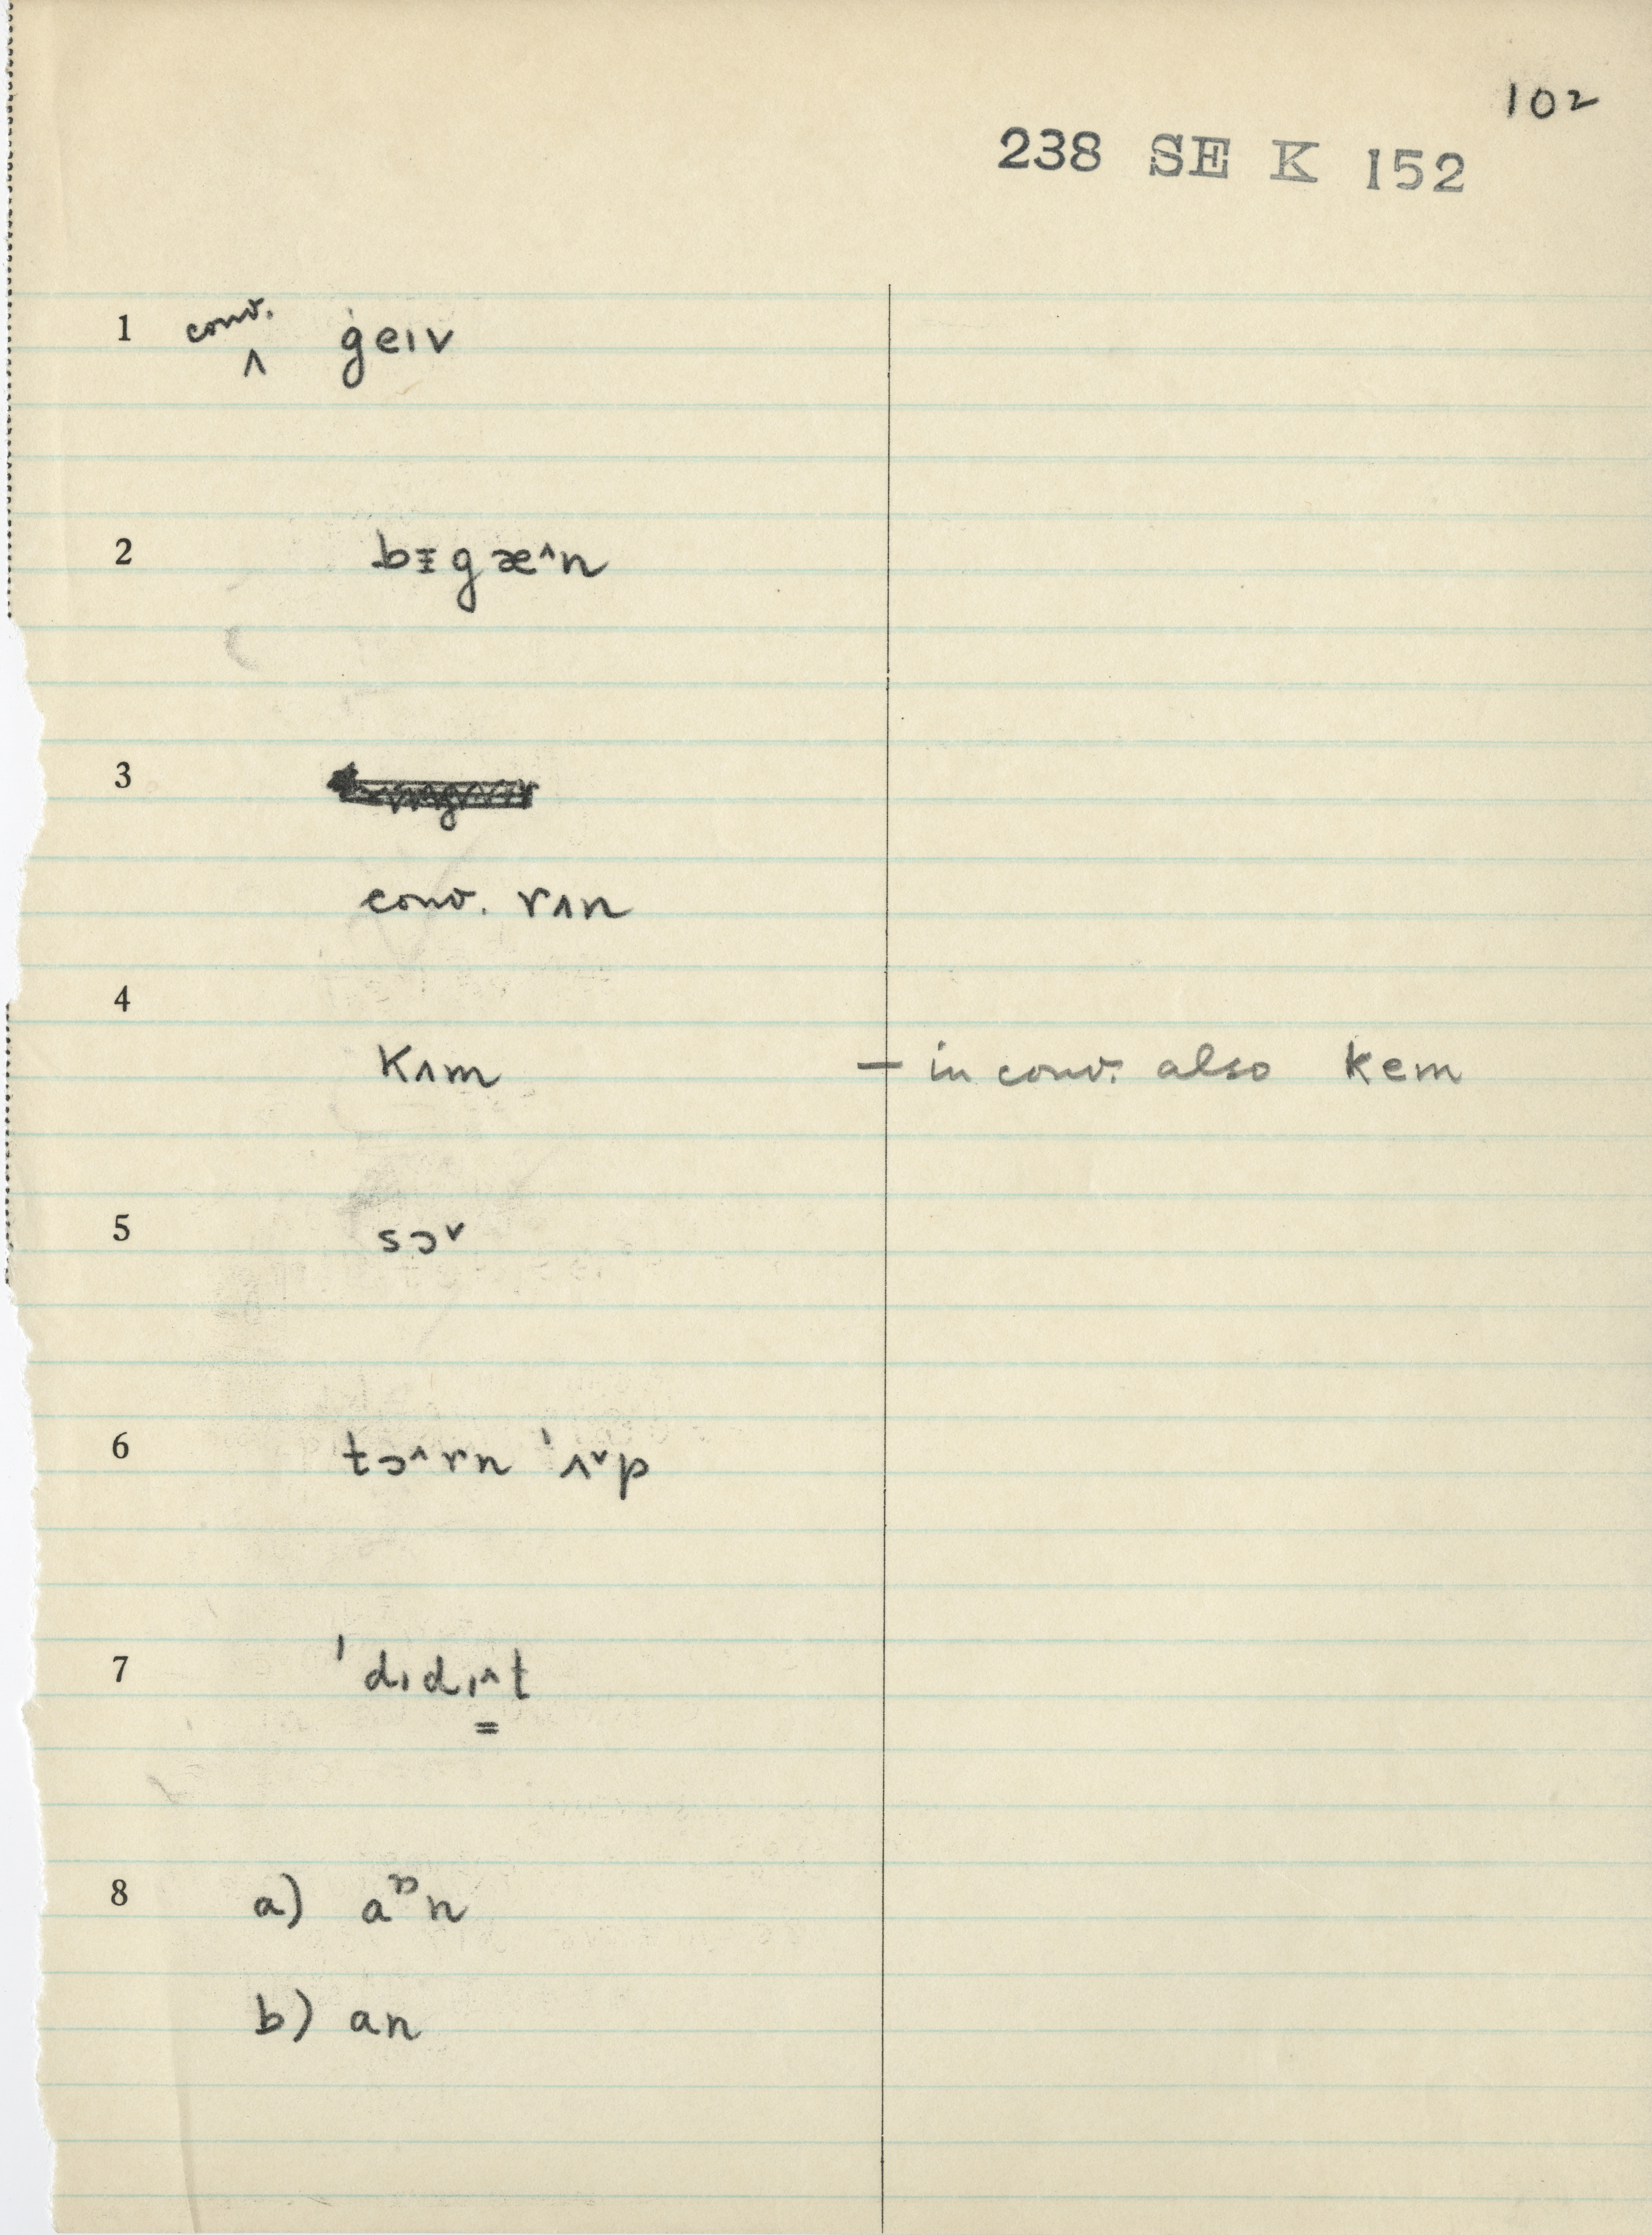 102
238 SE K 152
1 conv. ‸ ġeıv
2 bɪ̵gæ^n
3
conv. rʌn
4
kʌm — in conv. also kem
5 sɔ˅
6 tɔ^rn 'ʌ˅p
7 'dıdı^t
=
8 a) aᶛn
b) an